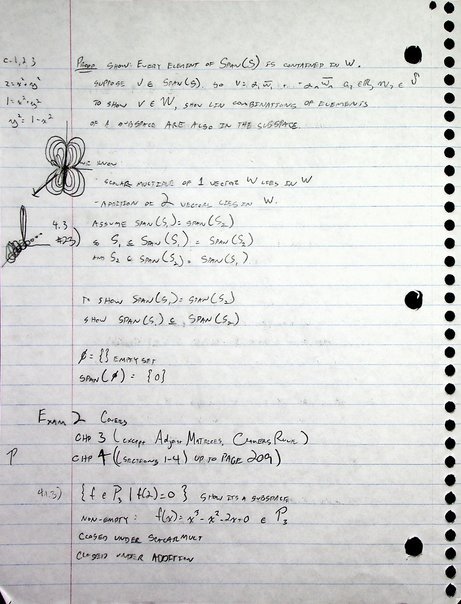 C-1,2,3
Proof Show: Every element of Span(S) is contained in W.
Suppose v ∈ Span(S). So
z = x²+y²
To show v ∈ W, show lin combinations of elements
1 = x²+y²
of a subspace are also in the subspace.
y² = 1-x²
we know
- scalar multiple of 1 vector w lies in W
- addition of 2 vectors lies in W.
4.3
#23)
Assume Span(S₁) = Span(S₂)
so S₁ ⊆ Span(S₁) = Span(S₂)
and S₂ ⊆ Span(S₂) = Span(S₁)
To show Span(S₁) = Span(S₂)
show Span(S₁) ⊆ Span(S₂)
∅ = {} empty set
Span(∅) = {0}
Exam 2 Covers
CHP 3 (except Adjoint Matrices, Cramers Rule)
P
CHP 4 ((sections 1-4) up to page 209)
{f ∈ P₃ | f(2)=0} show its a subspace
non-empty: f(x) = x³-x²-2x+0 ∈ P₃
closed under scalar mult
closed under addition